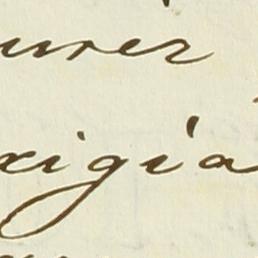 urer
xigia